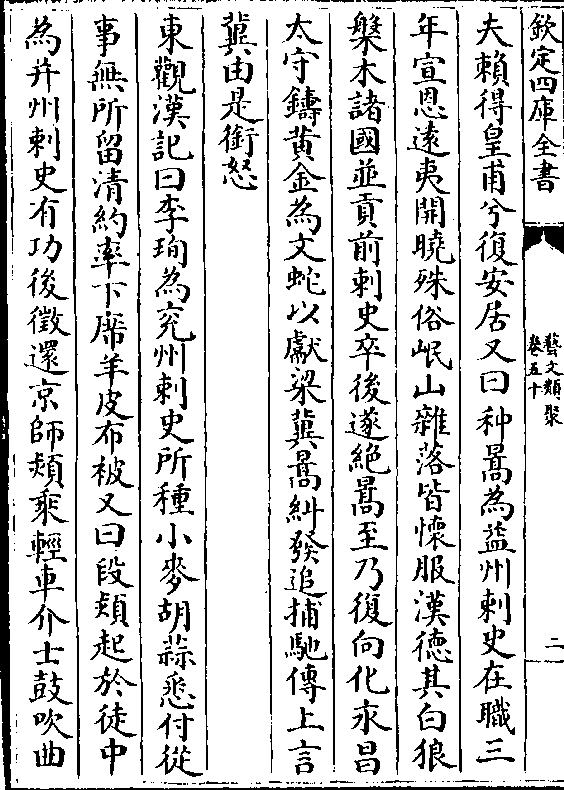 欽定四庫全書
藝文類聚
卷五十
二
夫賴得皇甫兮復安居又曰种暠為益州刺史在職三
年宣恩遠夷開曉殊俗岷山雜落皆懷服漢德其白狼
槃木諸國並貢前刺史卒後遂絶暠至乃復向化永昌
太守鑄黄金為文蛇以獻梁冀暠糾發追捕馳傳上言
冀由是銜怒
東觀漢記曰李珣為兖州刺史所種小麥胡蒜悉付從
事無所留清約率下席羊皮布被又曰段熲起於徒中
為并州刺史有功後徵還京師熲乘輕車介士鼓吹曲